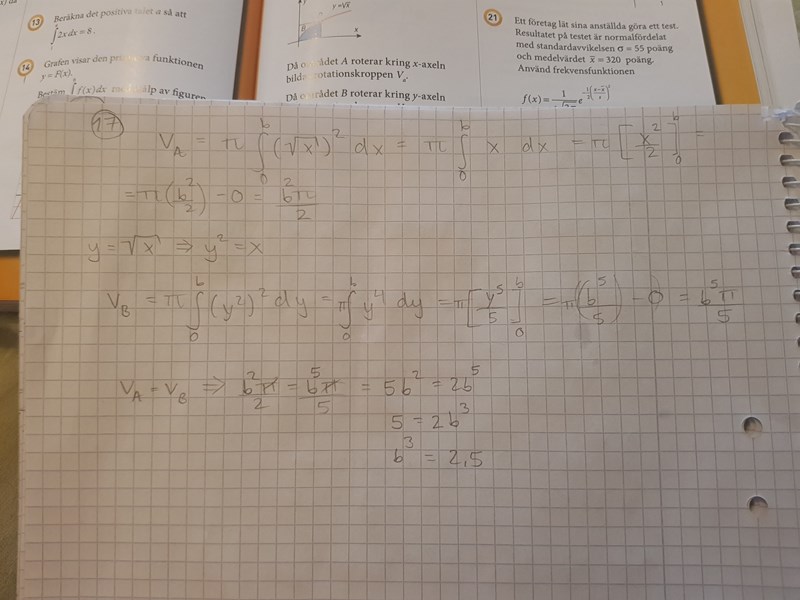 13 Beräkna det positiva talet a så att
∫2x dx = 8.
14 Grafen visar den
funktionen
y = F(x).
∫f(x)dx
av figuren
y=√x
B
x
Då området A roterar kring x-axeln
bildas rotationskroppen V
Då området B roterar kring y-axeln
21 Ett företag lät sina anställda göra ett test.
Resultatet på testet är normalfördelat
med standardavvikelsen σ = 55 poäng
och medelvärdet x̄ = 320 poäng.
Använd frekvensfunktionen
f(x) = 1
e
17
V_A = π ∫₀ᵇ (√x)² dx = π ∫₀ᵇ x dx = π [x²/2]₀ᵇ =
= π(b²/2) − 0 = b²π/2
y = √x ⇒ y² = x
V_B = π ∫₀ᵇ (y²)² dy = π ∫₀ᵇ y⁴ dy = π [y⁵/5]₀ᵇ = π(b⁵/5) − 0 = b⁵π/5
V_A = V_B ⇒ b²π/2 = b⁵π/5 = 5b² = 2b⁵
5 = 2b³
b³ = 2,5